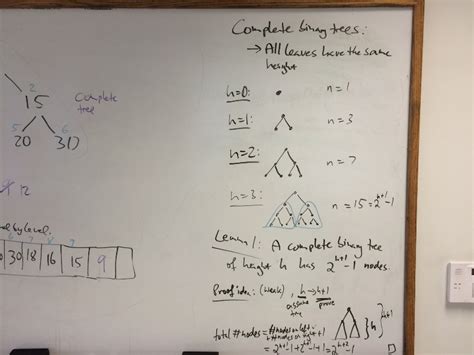 2
15
Complete
tree
5 6
20 30
12
by level.
30 18 16 15 9
Complete binary trees:
→ All leaves have the same
height
h=0: n=1
h=1: n=3
h=2: n=7
h=3: n=15=2^{h+1}-1
Lemma 1: A complete binary tree
of height h has 2^{h+1}-1 nodes.
Proof idea: (weak), h→h+1
assume prove
total # nodes = # nodes on left +
# nodes on right + 1
}h }h+1
= 2^{h+1}-1+2^{h+1}-1+1 = 2^{h+2}-1 □